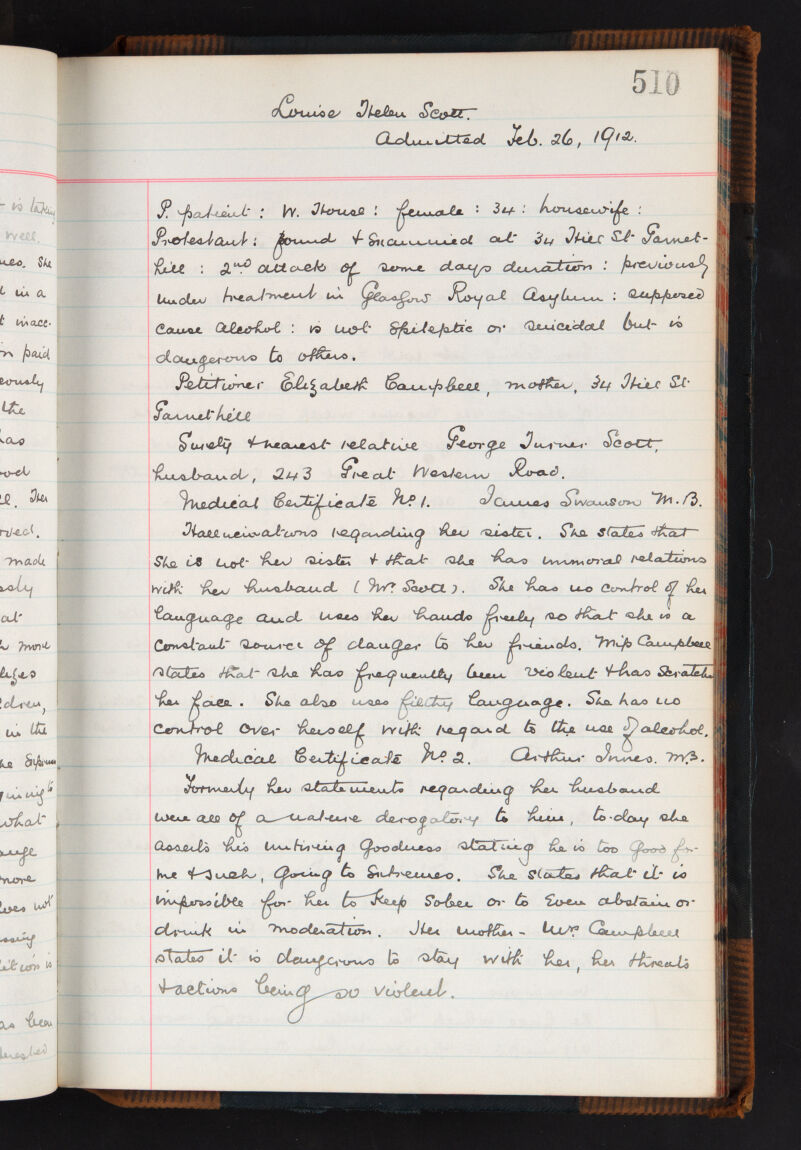 510
Louise Helen Scott.
Admitted Feb. 26, 1912.
P. patient : W. House : female : 34 : housewife :
Protestant : found & examined at 34 Hill St Garnet-
hill : 2nd attack of some days duration : previously
under treatment in Glasgow Royal Asylum : supposed
cause Alcohol : is not Epileptic or suicidal but is
dangerous to others.
Petitioner Elizabeth Campbell, mother, 34 Hill St
Garnethill
Surety & nearest relative George Turner Scott,
husband, 243 Great Western Road.
Medical Certificate No. 1. James Swanson M.B.
Hallucinations regarding her sister. She states that
she is not her sister & that she has immoral relations
with her husband (Mr. Scott). She has no control of her
language and uses her hands freely so that she is a
constant source of danger to her friends. Miss Campbell
states that she has frequently been violent & has scratched
her face. She also uses filthy language. She has no
control over herself with regard to the use of alcohol.
Medical Certificate No. 2. Arthur Innes. M.B.
Formerly her statements regarding her husband
were all of a nature derogatory to him, to-day she
asserts his untiring Goodness stating he is too good for
me & such, going to Extremes. She states that it is
impossible for her to Keep Sober or to Even abstain or
drink in moderation. Her mother - Mrs Campbell
states it is dangerous to stay with her, her threats
& actions being so violent.